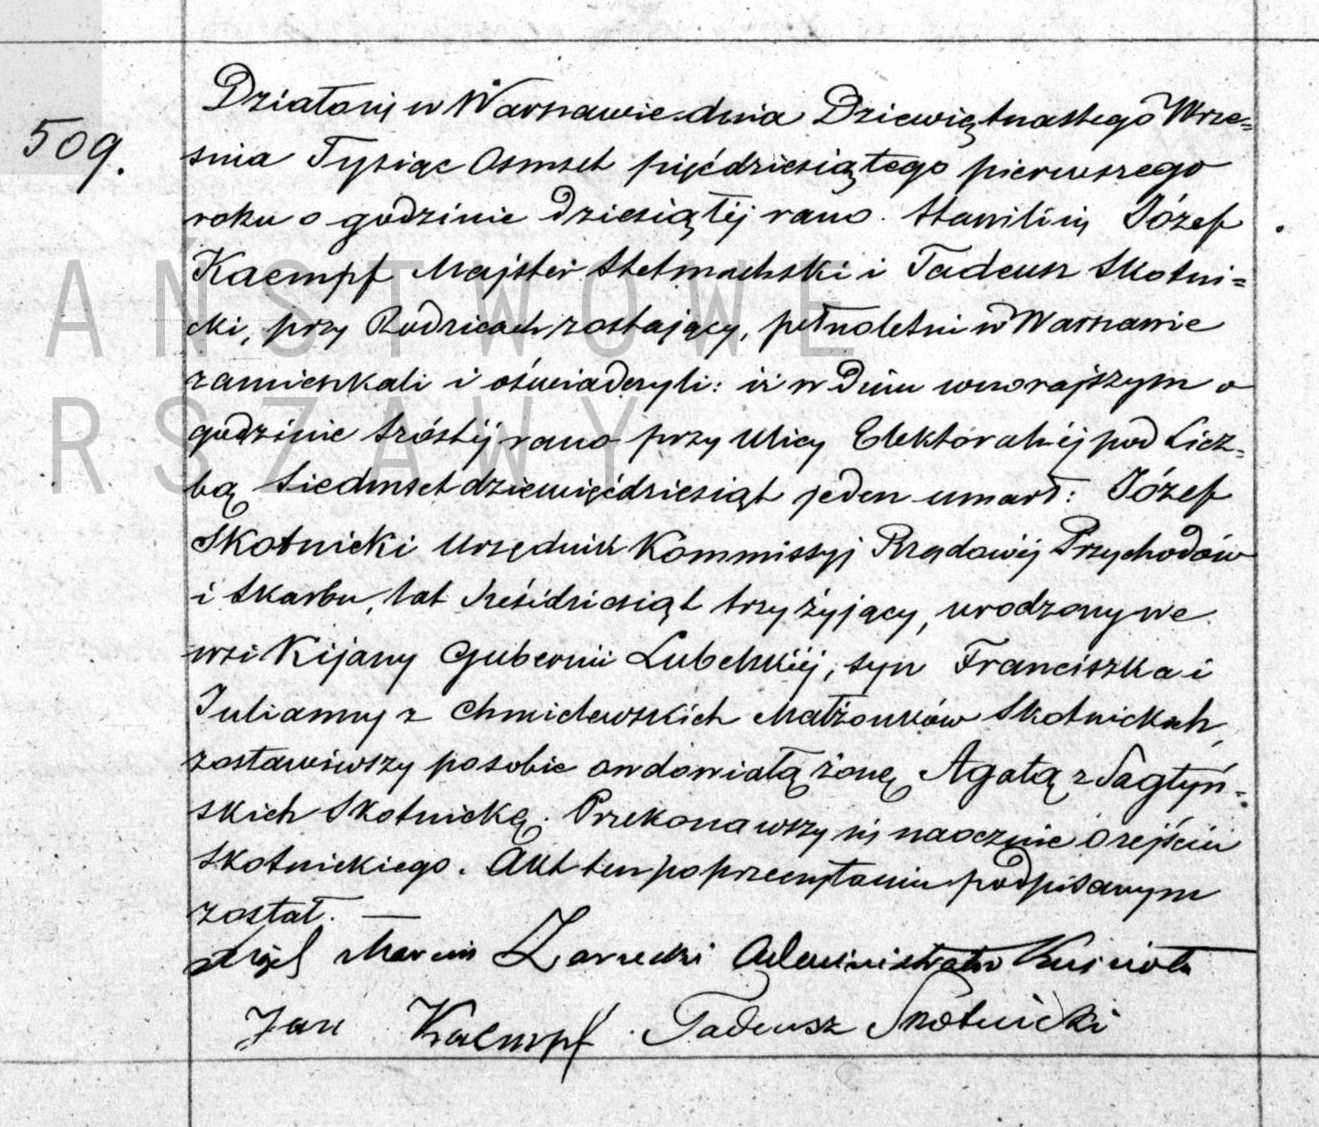 509.
Działo się w Warszawie dnia Dziewiętnastego Wrze=
śnia Tysiąc Osmset pięćdziesiątego pierwszego
roku o godzinie dziesiątéj rano. Stawili się Józef
Kaempf Majster Stelmachski i Tadeusz Skotni=
cki, przy Rodzicach zostający, pełnoletni w Warszawie
zamieszkali i oświadczyli: iż w Dniu wczorajszym o
godzinie szóstéj rano przy ulicy Elektoralnéj pod Licz=
bą Siedmset dziewięćdziesiąt jeden umarł: Józef
Skotnicki Urzędnik Kommissyj Rządowéj Przychodów
i Skarbu, lat sześćdziesiąt trzy żyjący, urodzony we
wsi Kijany Gubernii Lubelskiéj, syn Franciszka i
Julianny z Chmielewskich Małżonków Skotnickich,
zostawiwszy po sobie owdowiałą żonę Agatę z Sagtyń=
skich Skotnicką. Przekonawszy się naocznie o zejściu
Skotnickiego. Akt ten po przeczytaniu podpisanym
został. —
Marcin Administrator Kościoła
Jan Kaempf. Tadeusz Skotnicki
AŃSTWOWE
RSZAWY